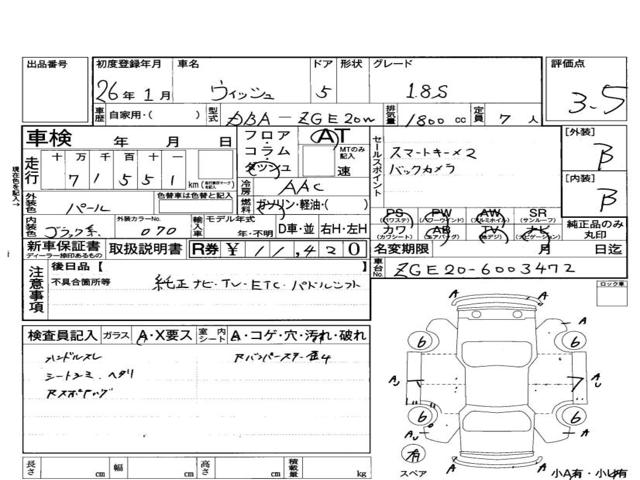 出品番号 初度登録年月 車名 ドア 形状 グレード 評価点
26年1月 ウィッシュ 5 1.8S 3.5
車歴 自家用・( ) 型式 DBA-ZGE20W 排気量 1800cc 定員 7人
車検 年 月 日 フロア・コラム・ダッシュ AT MTのみ記入 速 セールスポイント スマートキー×2 [外装] B
バックカメラ
走行 十 万 千 百 十 一
7 1 5 5 1 km 冷房 AAC [内装] B
現在色を記入→ 外装色 パール 色替車は色替と記入 燃料 ガソリン・軽油・( )
PS (パワステ) PW (パワーウインド) AW (アルミホイール) SR (サンルーフ) 純正品のみ丸印
内装色 ブラック系 外装カラーNo. 070 輸入車 モデル年式 年・不明 D車・並 右H・左H カワ (カワシート) AB (エアバッグ) TV (地デジ) ナビ (ナビゲーション)
新車保証書 ディーラー捺印あるもの 取扱説明書 R券 ¥11,420 名変期限 月 日迄
注意事項 後日品【 】 車台No. ZGE20-6003472
不具合箇所等 純正ナビ・TV・ETC・パドルシフト
ロック車
検査員記入 ガラス A・X要ス 室内シート A・コゲ・穴・汚れ・破れ
ハンドルスレ Rバンパースター歪4
シートシミ、ヘタリ
A A
6 6
AU AU
6 6
AU A
有
スペア A 小A有・小U有
長さ cm 幅 cm 高さ cm 積載量 kg